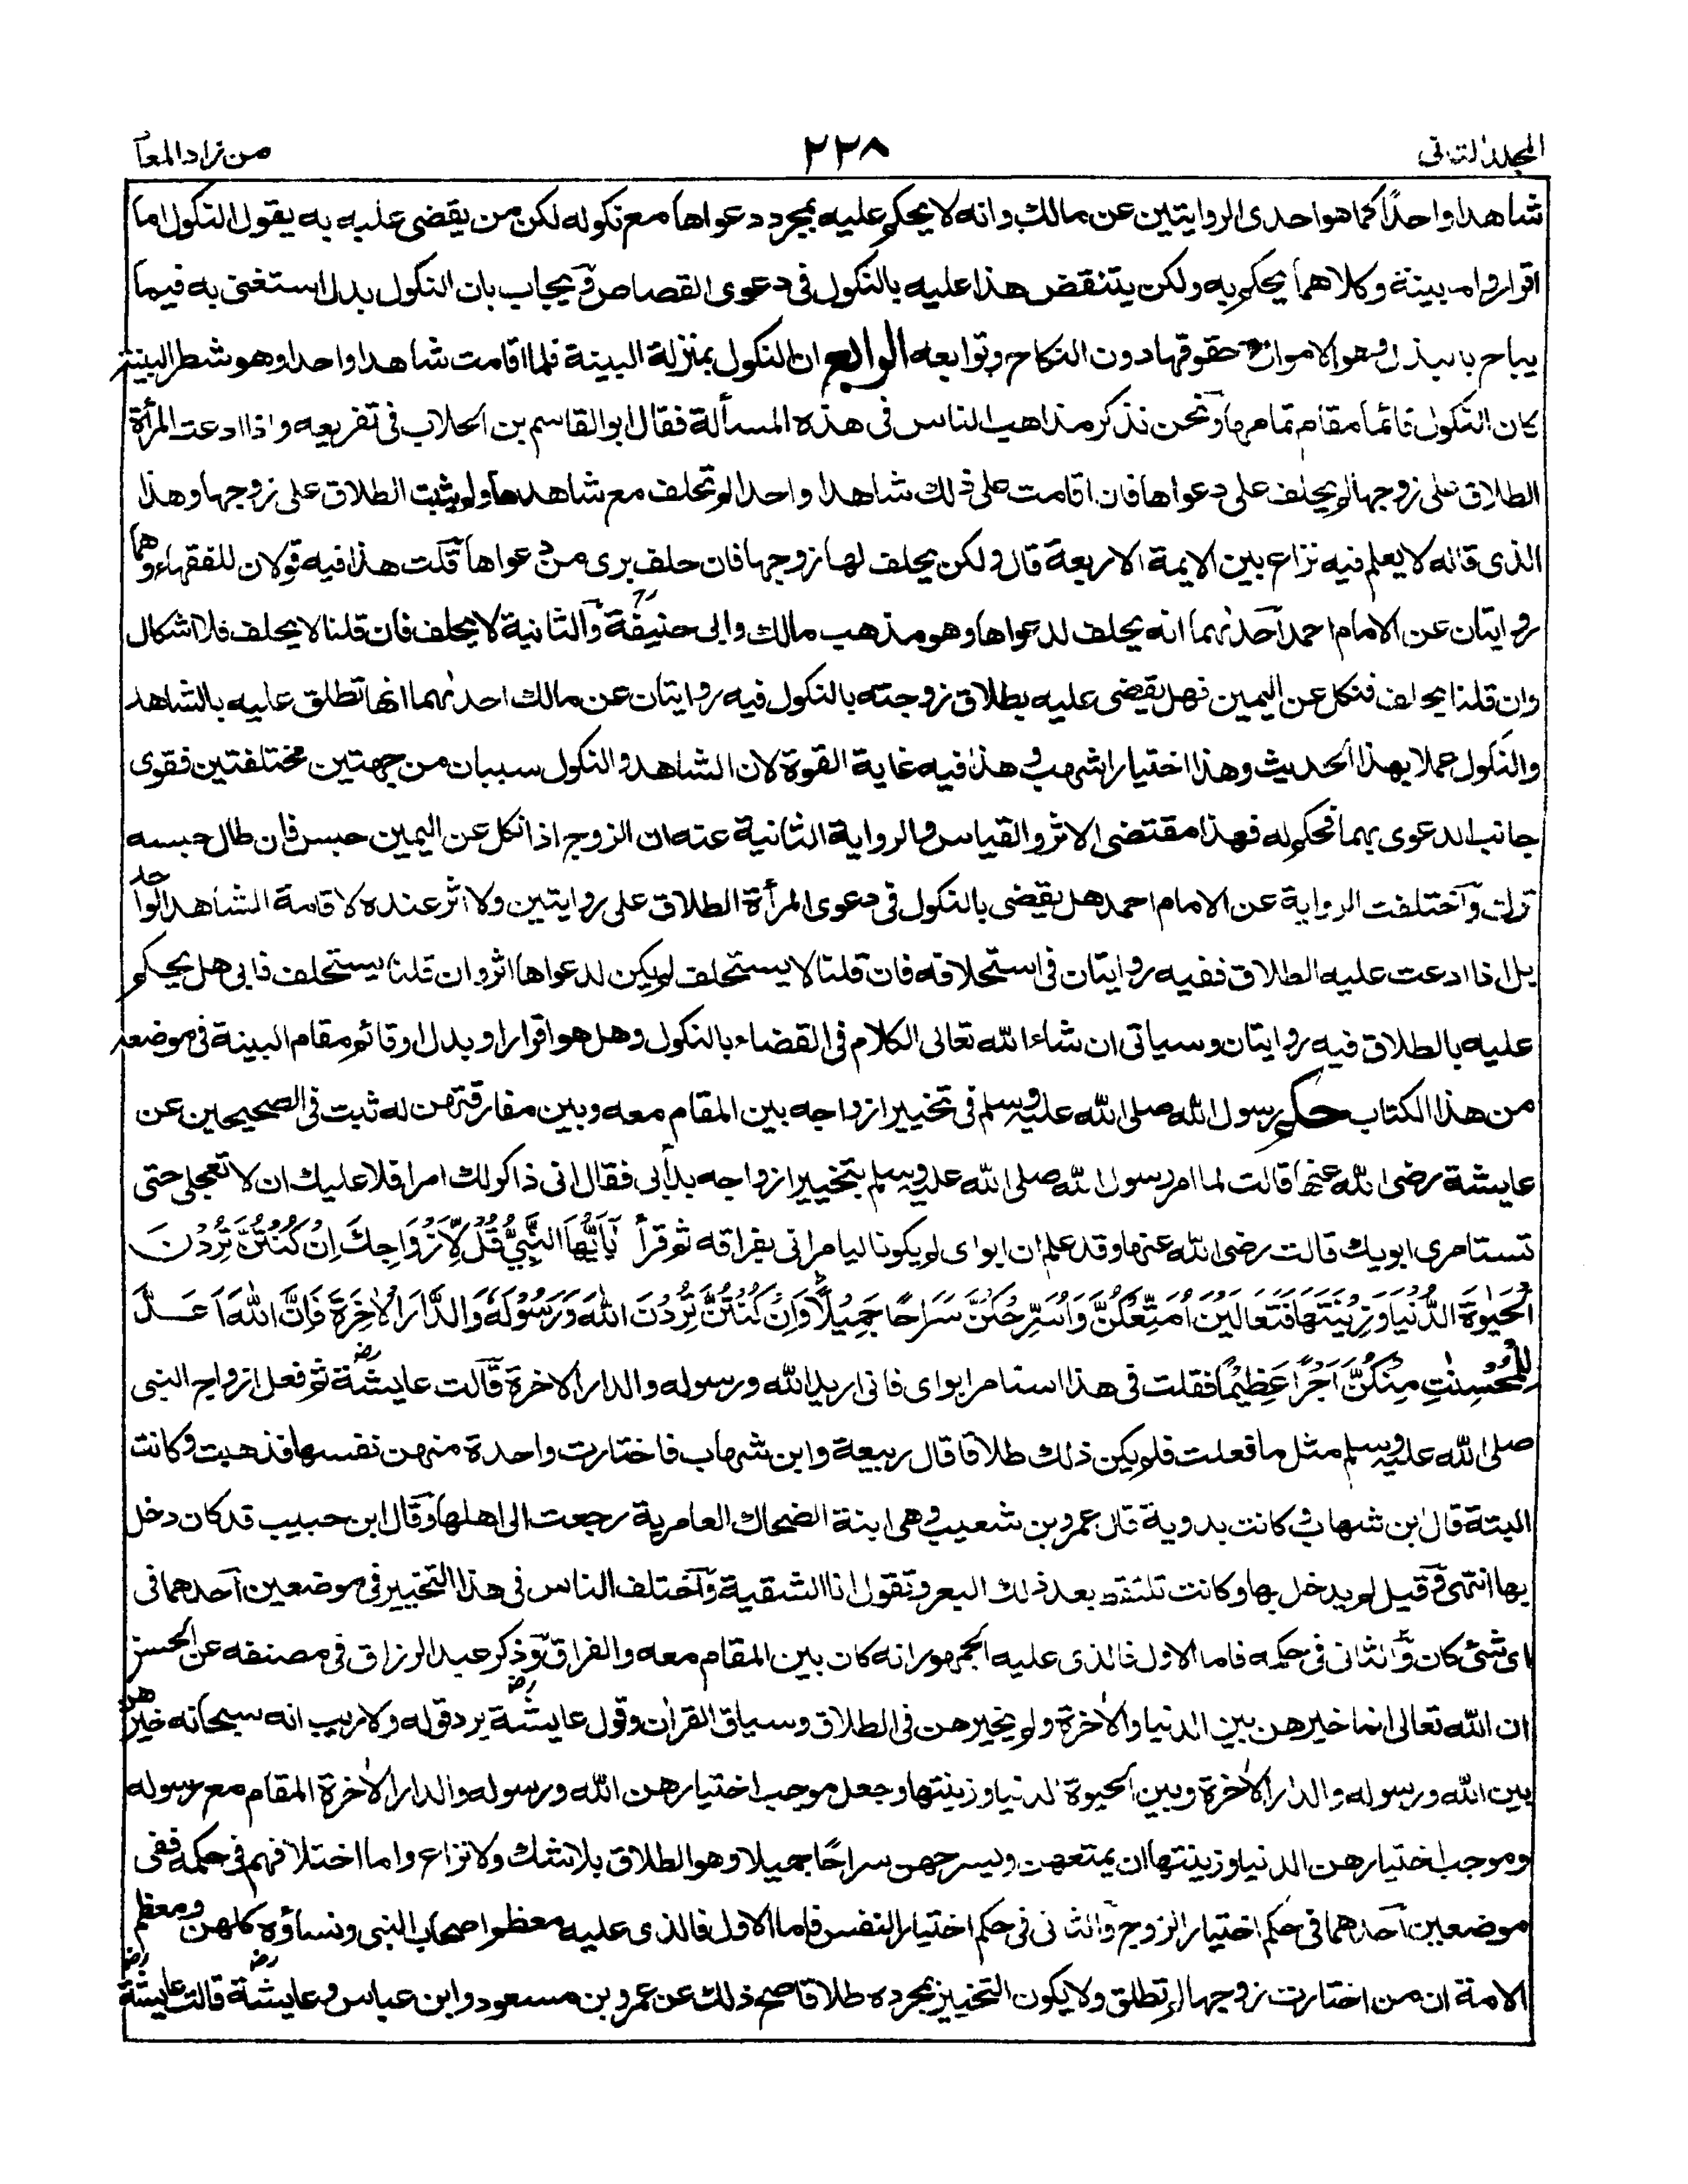 المجلد الثانى
٢٢٨
من زاد المعاد
شاهدا واحدًا كما هو احدى الروايتين عن مالك وانه لا يحكم عليه بمجرد دعواها مع نكوله لكن من يقضى عليه به يقول النكول اما
اقرار واما بينة وكلاهما يحكم به ولكن ينتقض هذا عليه بالنكول فى دعوى القصاص وقد يجاب بان النكول بدل استغنى به فيما
يباح بالبذل وهو الاموال وحقوقها دون النكاح وتوابعه الرابع ان النكول بمنزلة البينة فلما اقامت شاهدا واحدا وهو شطر البينة
كان النكول قائما مقام تمامها ونحن نذكر مذاهب الناس فى هذه المسألة فقال ابو القاسم بن الحلاب فى تفريعه واذا ادعت المرأة
الطلاق على زوجها لم يحلف على دعواها فان اقامت على ذلك شاهدا واحدا لم تحلف مع شاهدها ولم يثبت الطلاق على زوجها وهذا
الذى قاله لا يعلم فيه نزاع بين الايمة الاربعة قال ولكن يحلف لها زوجها فان حلف برى من دعواها قلت هذا فيه قولان للفقهاء وهما
روايتان عن الامام احمد احدٰهما انه يحلف لدعواها وهو مذهب مالك وابى حنيفة والثانية لا يحلف فان قلنا لا يحلف فلا اشكال
وان قلنا يحلف فنكل عن اليمين فهل يقضى عليه بطلاق زوجته بالنكول فيه روايتان عن مالك احدٰهما انها تطلق عليه بالشاهد
والنكول عملا بهذا الحديث وهذا اختيار اشهب وهذا فيه غاية القوة لان الشاهد والنكول سببان من جهتين مختلفتين فقوى
جانب الدعوى بهما فحكم له فهذا مقتضى الاثر والقياس والرواية الثانية عنه ان الزوج اذا نكل عن اليمين حبس فان طال حبسه
ترك واختلفت الرواية عن الامام احمد هل يقضى بالنكول فى دعوى المرأة الطلاق على روايتين ولا اثر عنده لاقامة الشاهد الواحد
بل اذا ادعت عليه الطلاق ففيه روايتان فى استحلافه فان قلنا لا يستحلف لم يكن لدعواها اثر وان قلنا يستحلف فابى هل يحكم
عليه بالطلاق فيه روايتان وسياتى ان شاء الله تعالى الكلام فى القضاء بالنكول وهل هو اقرار او بدل او قائم مقام البينة فى موضعه
من هذا الكتاب حكم رسول الله صلى الله عليه وسلم فى تخيير ازواجه بين المقام معه وبين مفارقتهن له ثبت فى الصحيحين عن
عايشة رضى الله عنها قالت لما امر رسول الله صلى الله عليه وسلم بتخيير ازواجه بدأ بى فقال انى ذاكر لك امرا فلا عليك ان لا تعجلى حتى
تستامرى ابويك قالت رضى الله عنها وقد علم ان ابواى لم يكونا ليامرانى بفراقه ثم قرأ يَٰٓأَيُّهَا النَّبِيُّ قُلْ لِّأَزْوَاجِكَ اِنْ كُنْتُنَّ تُرِدْنَ
الْحَيٰوةَ الدُّنْيَا وَزِيْنَتَهَا فَتَعَالَيْنَ اُمَتِّعْكُنَّ وَاُسَرِّحْكُنَّ سَرَاحًا جَمِيْلًا وَاِنْ كُنْتُنَّ تُرِدْنَ اللّٰهَ وَرَسُوْلَهٗ وَالدَّارَ الْاٰخِرَةَ فَاِنَّ اللّٰهَ اَعَدَّ
لِلْمُحْسِنٰتِ مِنْكُنَّ اَجْرًا عَظِيْمًا فقلت فى هذا استامر ابواى فانى اريد الله ورسوله والدار الاخرة قالت عايشة ثم فعل ازواج النبى
صلى الله عليه وسلم مثل ما فعلت فلم يكن ذلك طلاقا قال ربيعة وابن شهاب فاختارت واحدة منهن نفسها فذهبت وكانت
البتة قال ابن شهاب وكانت بدوية قال عمرو بن شعيب وهى ابنة الضحاك العامرية رجعت الى اهلها وقال ابن حبيب قد كان دخل
بها انتهى وقيل لم يدخل بها وكانت تلتقط بعد ذلك البعر وتقول انا الشقية واختلف الناس فى هذا التخيير فى موضعين احدهما فى
اى شئ كان والثانى فى حكمه فاما الاول فالذى عليه الجمهور انه كان بين المقام معه والفراق وذكر عبد الرزاق فى مصنفه عن الحسن
ان الله تعالى انما خيرهن بين الدنيا والاخرة ولم يخيرهن فى الطلاق وسياق القران وقول عايشة يرد قوله ولا ريب انه سبحانه خيرهن
بين الله ورسوله والدار الاٰخرة وبين الحيوة الدنيا وزينتها وجعل موجب اختيارهن الله ورسوله والدار الاٰخرة المقام مع رسوله
وموجب اختيارهن الدنيا وزينتها ان يمتعهن ويسرحهن سراحًا جميلا وهو الطلاق بلا شك ولا نزاع واما اختلافهم فى حكمه ففى
موضعين احدهما فى حكم اختيار الزوج والثانى فى حكم اختيار النفس فاما الاول فالذى عليه معظم اصحاب النبى ونساؤه كلهن ومعظم
الامة ان من اختارت زوجها لم تطلق ولا يكون التخيير بمجرده طلاقا صح ذلك عن عمر وبن مسعود وابن عباس وعايشة قالت عايشة